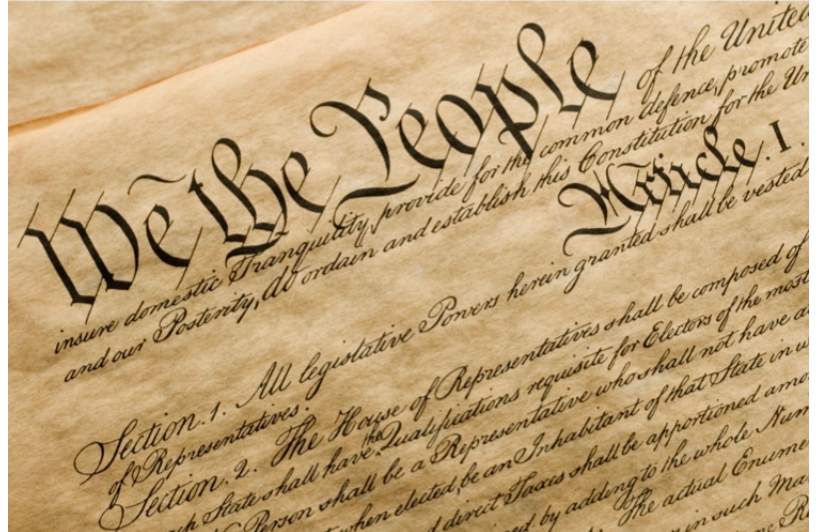 We the People of the United
insure domestic Tranquility, provide for the common defence, promote
and our Posterity, do ordain and establish this Constitution for the Un
Article. I.
Section. 1. All legislative Powers herein granted shall be vested
of Representatives.
Section. 2. The House of Representatives shall be composed of
ch State shall have the Qualifications requisite for Electors of the most
Person shall be a Representative who shall not have a
when elected, be an Inhabitant of that State in w
d direct Taxes shall be apportioned amo
ed by adding to the whole Num
The actual Enume
in such Ma